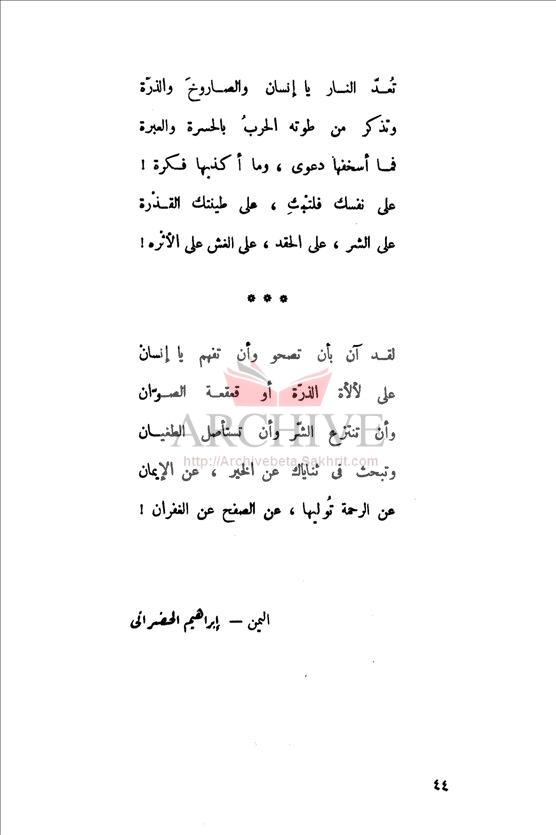 تُعـدّ النـار يا إنسان والصـاروخَ والذرّة
وتذكر من طوته الحربُ بالحسرة والعبرة
فمـا أسخفها دعوى ، وما أكذبها فـكرة !
على نفسك فلتبْكِ ، على طينتك القـذْرة
على الشر ، على الحقد ، على الغش على الأثْره !
* * *
لقـد آن بأن تصحو وأن تفهم يا إنسانْ
على لألأة الذرّة أو قعقعـة الصـوّان
ARCHIVE
وأن تنتزع الشّر وأن تستأصل الطغيـان
http://Archivebeta.Sakhrit.com
وتبحث فى ثناياك عن الخير ، عن الإيمان
عن الرحمة تُوليها ، عن الصفح عن الغفران !
اليمن — إبراهيم الحضرانى
٤٤